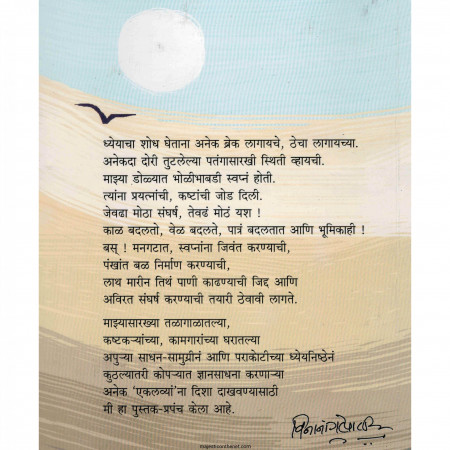 ध्येयाचा शोध घेताना अनेक ब्रेक लागायचे, ठेचा लागायच्या.
अनेकदा दोरी तुटलेल्या पतंगासारखी स्थिती व्हायची.
माझ्या डोळ्यात भोळीभाबडी स्वप्नं होती.
त्यांना प्रयत्नांची, कष्टांची जोड दिली.
जेवढा मोठा संघर्ष, तेवढं मोठं यश !
काळ बदलतो, वेळ बदलते, पात्रं बदलतात आणि भूमिकाही !
बस् ! मनगटात, स्वप्नांना जिवंत करण्याची,
पंखांत बळ निर्माण करण्याची,
लाथ मारीन तिथं पाणी काढण्याची जिद्द आणि
अविरत संघर्ष करण्याची तयारी ठेवावी लागते.
माझ्यासारख्या तळागाळातल्या,
कष्टकऱ्यांच्या, कामगारांच्या घरातल्या
अपुऱ्या साधन-सामुग्रीनं आणि पराकोटीच्या ध्येयनिष्ठेनं
कुठल्यातरी कोपऱ्यात ज्ञानसाधना करणाऱ्या
अनेक ‘एकलव्यां’ना दिशा दाखवण्यासाठी
मी हा पुस्तक-प्रपंच केला आहे.